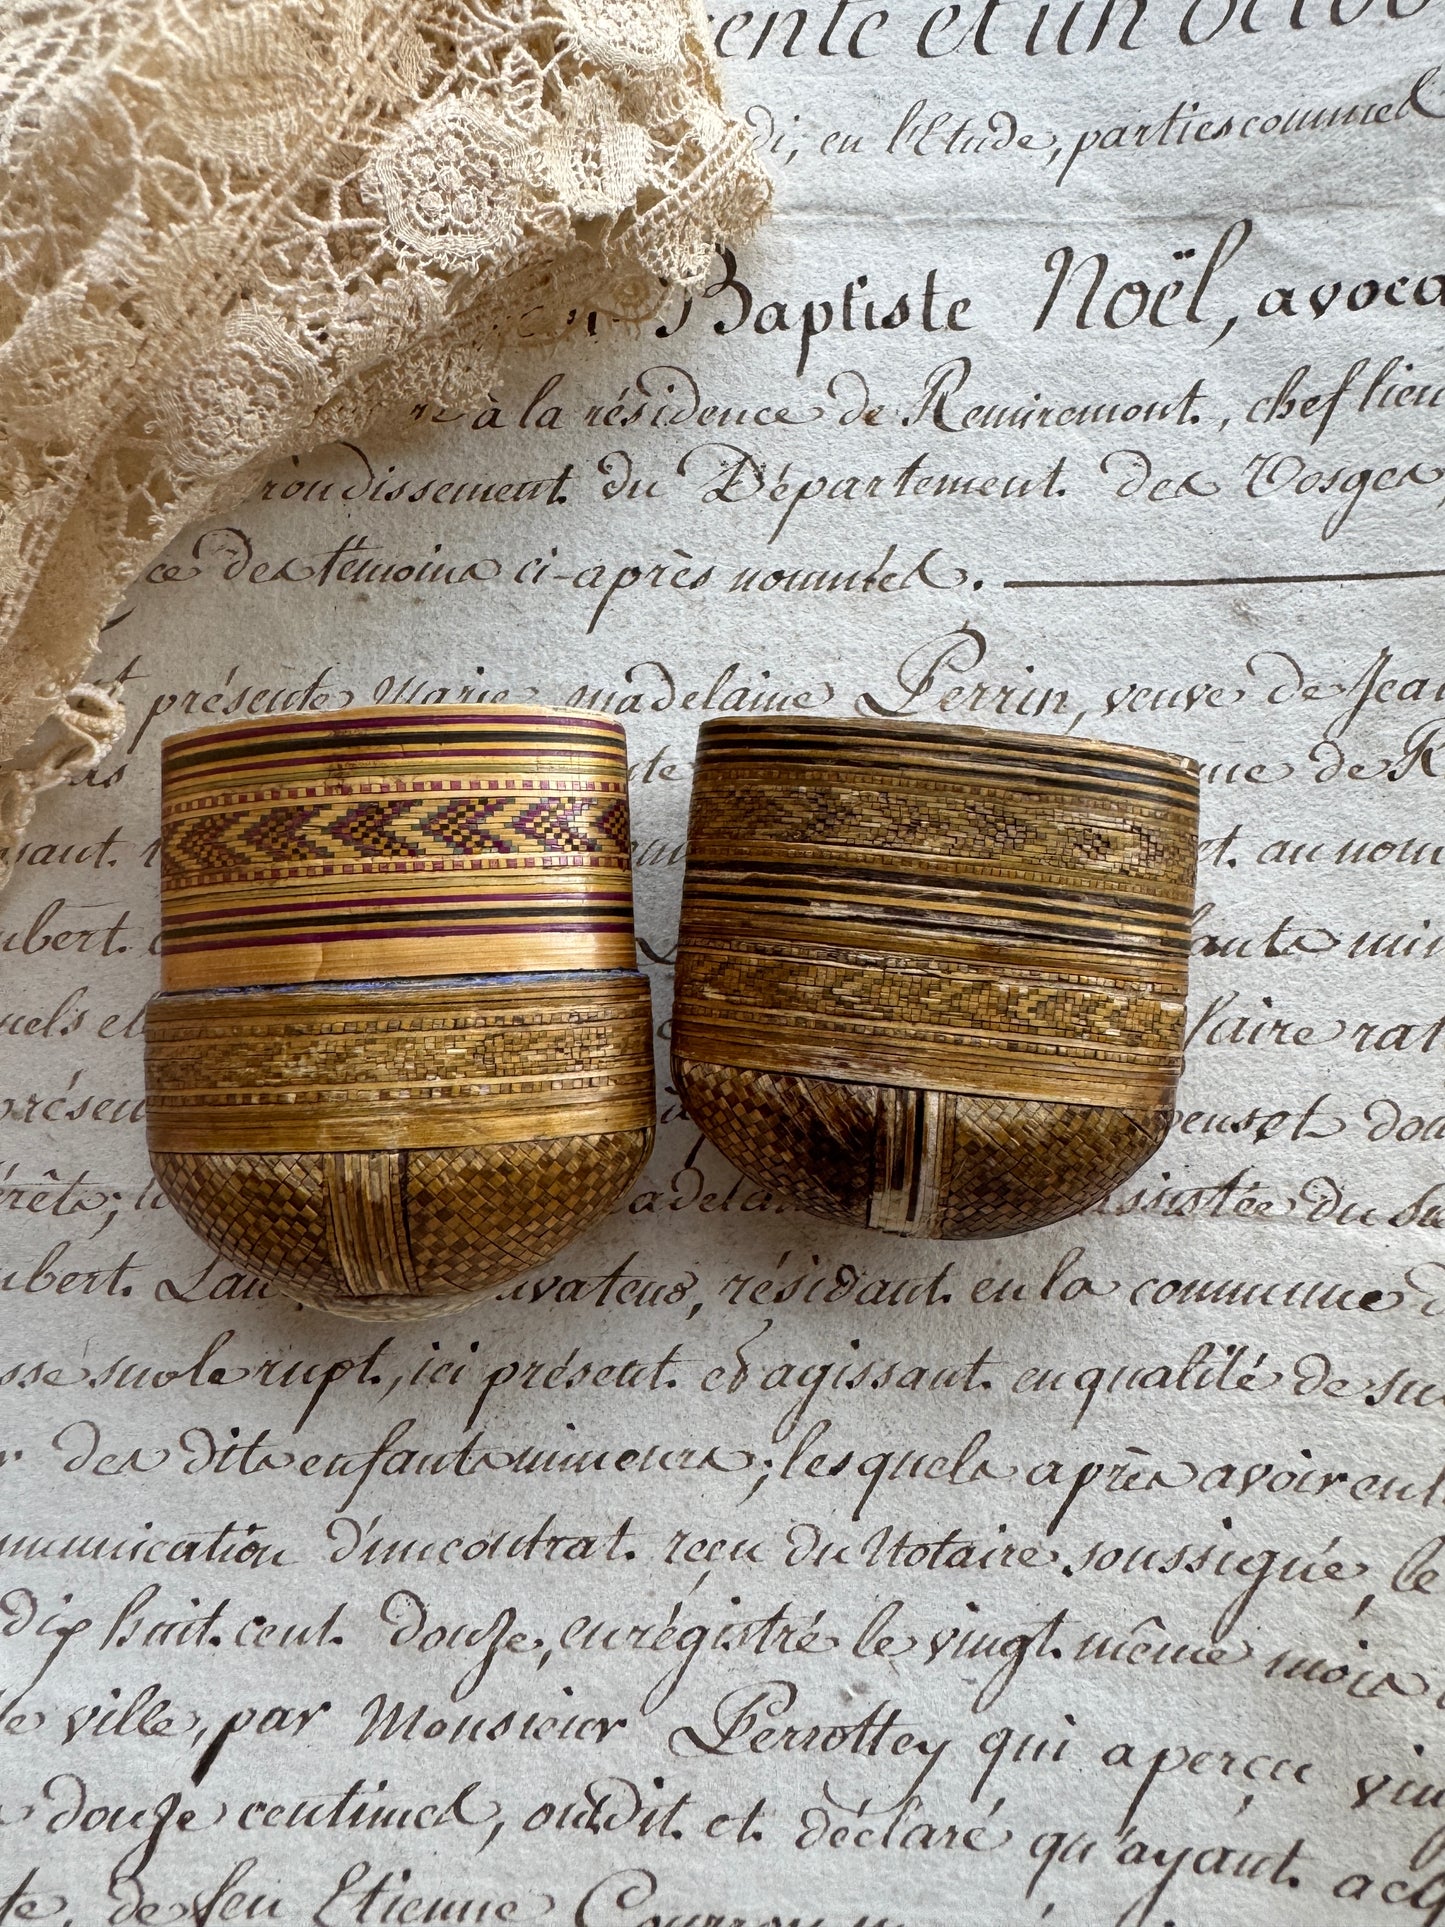 ente et un octo
di, en l'Etude, partiescommel
Baptiste Noël, avoca
re à la résidence de Remiremont, chef lieu
rondissement du Département des Vosges,
ce des témoins ci-après nommés.
présente Marie madelaine Perrin, veuve de Jea
te ue de R
sant et. au nom
ubert. ante min
uels et faire rat
présen
rêts; la adela ssistée du su
ubert. Lau vateur, résidant en la commune d
sse sur le rupt, ici présent et agissant en qualité de su
r des dits enfants mineurs; lesquels après avoir eu l
mmunication d'un contrat reçu du Notaire soussigné, le
dix huit cent douze, enrégistré le vingt même mois
le ville, par Monsieur Perrottey qui a perçu vin
douze centimes, ont dit et déclaré qu'ayant acq
te, de feu Etienne